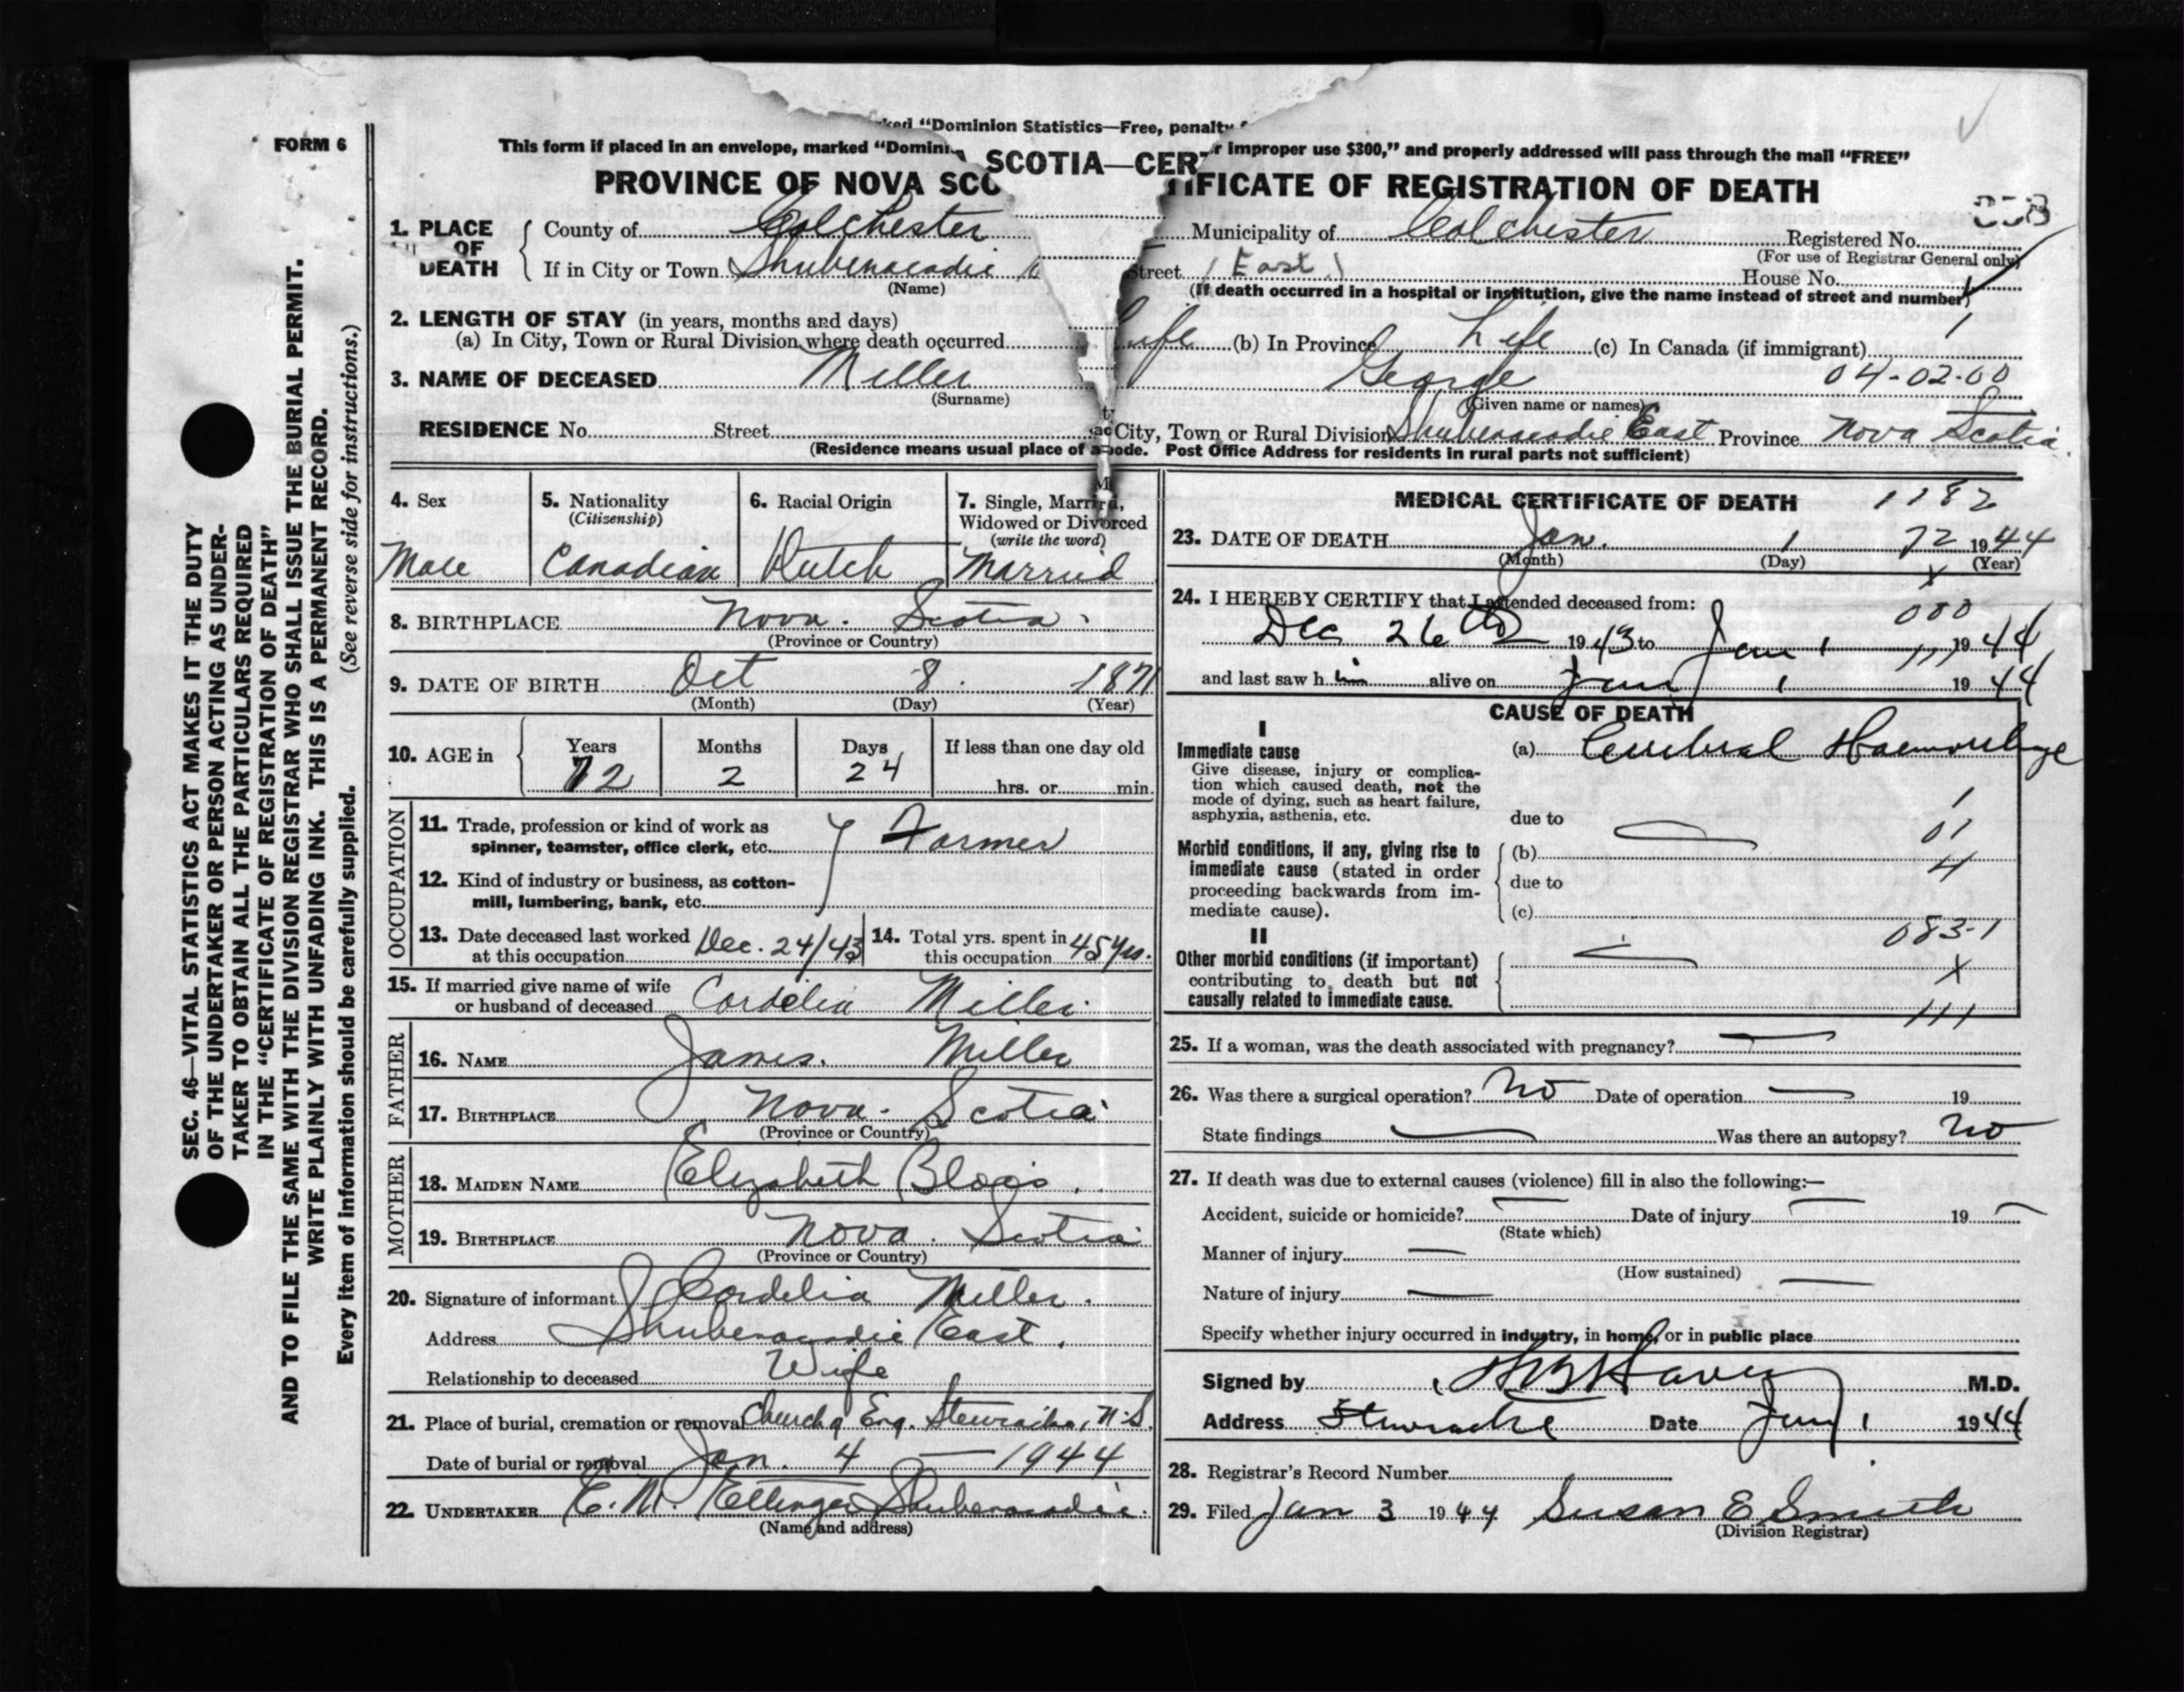 FORM 6
ked "Dominion Statistics—Free, penalty
This form if placed in an envelope, marked "Domini r improper use $300," and properly addressed will pass through the mail "FREE"
SCOTIA—CER
PROVINCE OF NOVA SCO TIFICATE OF REGISTRATION OF DEATH
1. PLACE OF DEATH
County of Colchester Municipality of Colchester Registered No.
(For use of Registrar General only)
If in City or Town Shubenacadie Street (East) House No.
(Name) (If death occurred in a hospital or institution, give the name instead of street and number)
2. LENGTH OF STAY (in years, months and days) 1
(a) In City, Town or Rural Division where death occurred Life (b) In Province Life (c) In Canada (if immigrant)
3. NAME OF DECEASED Miller George 04-02-00
(Surname) (Given name or names)
RESIDENCE No. Street City, Town or Rural Division Shubenacadie East Province Nova Scotia
(Residence means usual place of abode. Post Office Address for residents in rural parts not sufficient)
4. Sex 5. Nationality (Citizenship) 6. Racial Origin 7. Single, Married, Widowed or Divorced (write the word)
Male Canadian Dutch Married
8. BIRTHPLACE Nova Scotia
(Province or Country)
9. DATE OF BIRTH Oct 8 1871
(Month) (Day) (Year)
10. AGE in Years Months Days If less than one day old
72 2 24 hrs. or min.
OCCUPATION
11. Trade, profession or kind of work as
spinner, teamster, office clerk, etc. Farmer
12. Kind of industry or business, as cotton-
mill, lumbering, bank, etc.
13. Date deceased last worked at this occupation Dec. 24/43 14. Total yrs. spent in this occupation 45 yrs.
15. If married give name of wife
or husband of deceased Cordelia Miller
FATHER
16. NAME James Miller
17. BIRTHPLACE Nova Scotia
(Province or Country)
MOTHER
18. MAIDEN NAME Elizabeth Blois
19. BIRTHPLACE Nova Scotia
(Province or Country)
20. Signature of informant Cordelia Miller
Address Shubenacadie East
Relationship to deceased Wife
21. Place of burial, cremation or removal Church of Eng. Stewiacke, N.S.
Date of burial or removal Jan. 4 — 1944
22. UNDERTAKER E. M. Ettinger Shubenacadie
(Name and address)
MEDICAL CERTIFICATE OF DEATH 1182
23. DATE OF DEATH Jan. 1 72 1944
(Month) (Day) (Year)
X
24. I HEREBY CERTIFY that I attended deceased from: 000
Dec 26th 1943 to Jan 1 1944
111
and last saw him alive on Jan 1 1944
CAUSE OF DEATH
I
Immediate cause (a) Cerebral Haemorrhage
Give disease, injury or complica-
tion which caused death, not the
mode of dying, such as heart failure,
asphyxia, asthenia, etc.
due to 1
01
Morbid conditions, if any, giving rise to
immediate cause (stated in order
proceeding backwards from im-
mediate cause).
(b) 4
due to
(c)
083-1
II
Other morbid conditions (if important)
contributing to death but not
causally related to immediate cause.
X
111
25. If a woman, was the death associated with pregnancy? —
26. Was there a surgical operation? No Date of operation — 19
State findings — Was there an autopsy? No
27. If death was due to external causes (violence) fill in also the following:—
Accident, suicide or homicide? — Date of injury — 19 —
(State which)
Manner of injury —
(How sustained)
Nature of injury —
Specify whether injury occurred in industry, in home, or in public place
Signed by M.D.
Address Stewiacke Date Jan 1 1944
28. Registrar's Record Number
29. Filed Jan 3 1944 Susan E Smith
(Division Registrar)
SEC. 46—VITAL STATISTICS ACT MAKES IT THE DUTY
OF THE UNDERTAKER OR PERSON ACTING AS UNDER-
TAKER TO OBTAIN ALL THE PARTICULARS REQUIRED
IN THE "CERTIFICATE OF REGISTRATION OF DEATH"
AND TO FILE THE SAME WITH THE DIVISION REGISTRAR WHO SHALL ISSUE THE BURIAL PERMIT.
WRITE PLAINLY WITH UNFADING INK. THIS IS A PERMANENT RECORD.
Every item of information should be carefully supplied. (See reverse side for instructions.)